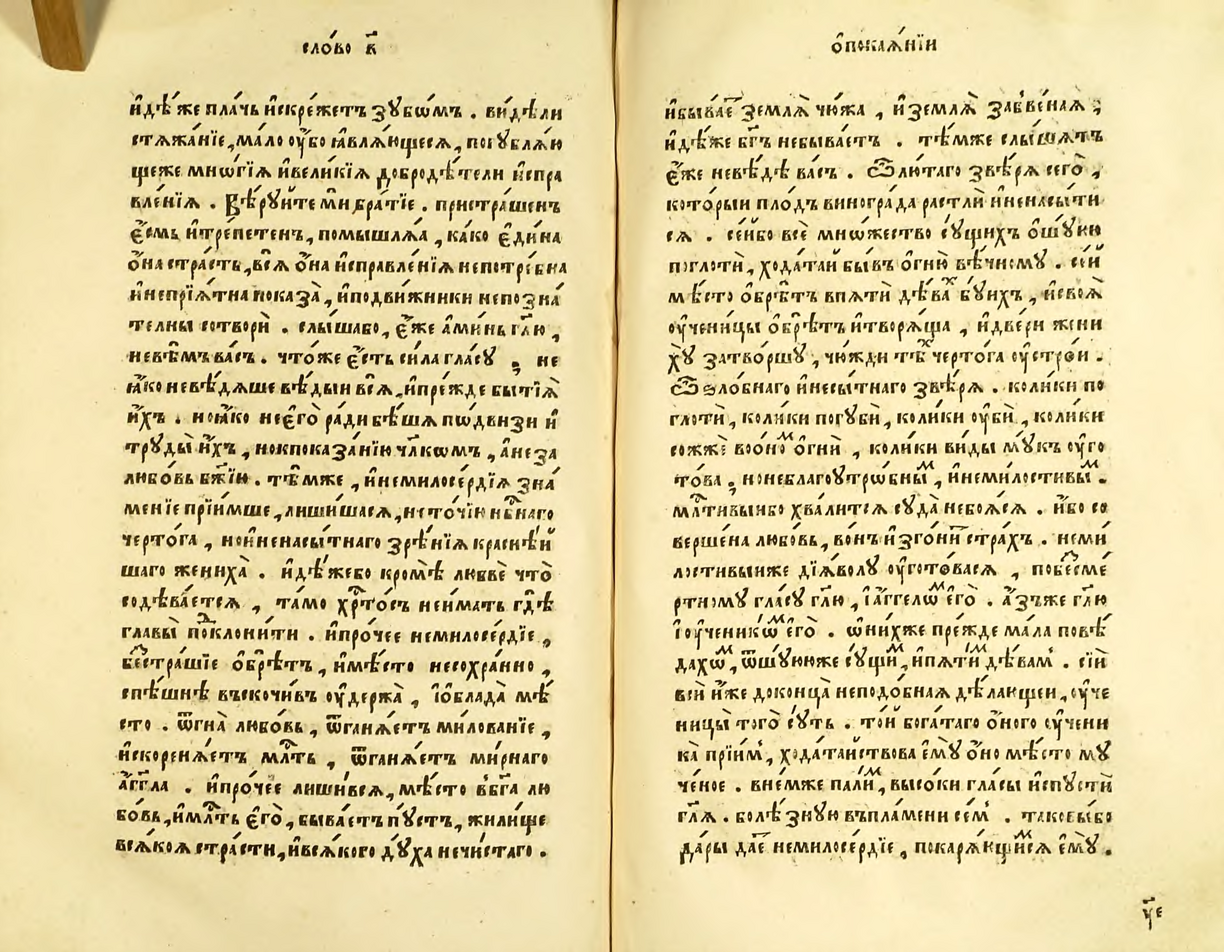 сло́во к҃
и҆дѣ́же пла́чь и҆скре́жетъ зꙋбѡ́мъ . ви́дѣли
стѧжа́нїе, ма́ло ᲂу҆́бо ꙗ҆влѧ́ющеесѧ, погꙋблѧ́ю
щеже мнѡ́гїѧ и҆вели́кїѧ добродѣ́тели и҆спра
вле́нїѧ . Вѣ́рꙋйте ми бра́тїе . пристра́шенъ
є҆́смь и҆тре́петенъ, помышлѧ́ѧ, ка́ко є҆ди́на
ѻ҆на стра́сть, всѧ̀ ѻ҆на и҆справле́нїѧ непотре́бна
и҆непрїѧ́тна показа̀, и҆подви́жники непозна́
телны сотворѝ . слы́шабо, є҆́же а҆ми́нь гл҃ю,
невѣ́мъ ва́съ . что́же є҆́сть си́ла гла́сꙋ , не
ꙗ҆́ко невѣ́дѧше вѣ́дыи всѧ̀, и҆пре́жде бытїѧ̀
и҆́хъ . ноꙗ҆́ко неє҆гѡ̀ ра́ди бѣ́шѧ по́двизи и҆
трꙋды̀ и҆́хъ, нокпоказа́нїю чл҃кѡмъ, а҆неза
любо́вь бж҃їю . тѣ́мже, и҆немилосе́рдїѧ зна́
менїе прїи́мше, лиши́шасѧ, нето́чїю нб҃наго
черто́га, нои҆ненасы́тнаго зрѣ́нїѧ краснѣ́й
шаго женихà . и҆дѣ́жебо кромѣ̀ любвѐ что̀
содѣ́ваетсѧ, та́мо хр҃то́съ неи́мать гдѣ̀
главы̀ поклони́ти . и҆про́чее немилосе́рдїе,
бестра́шїе ѻ҆брѣ́тъ, и҆мѣ́сто несохра́нно,
спѣ́шнѣ въскочи́въ ᲂу҆держа̀, і҆ѡ҆блада̀ мѣ́
сто . ѿгна̀ любо́вь, ѿганѧ́етъ милова́нїе,
и҆скоренѧ́етъ мл҃ть, ѿганѧ́етъ ми́рнаго
а҆́гг҃ла . и҆про́чее лиши́всѧ, мѣ́сто вбг҃а лю
бо́вь, и҆мл҃ть є҆гѡ̀, быва́етъ пꙋ́стъ, жили́ще
всѧ́коѧ стра́сти, и҆всѧ́кого дꙋ́ха нечи́стаго .
ѻ҆покаѧ́нїи
и҆быва́е землѧ̀ чю́жа, и҆землѧ̀ забве́наѧ ;
и҆дѣ́же бг҃ъ небыва́етъ . тѣ́мже слы́шѧтъ
є҆́же невѣ́дѣ ва́съ . Ѿлю́таго звѣ́рѧ сегѡ̀,
который пло́дъ виногра́да растлѝ и҆ненасы́ти
сѧ . се́йбо всѐ мно́жество сꙋ́щихъ ѻ҆шꙋ́юю
поглотѝ, хода́тай бы́въ ѻ҆гню̀ вѣ́чномꙋ . се́й
мѣ́сто ѻ҆брѣ́тъ впѧтѝ дѣва́х бꙋ́ихъ, и҆своѧ̀
ᲂу҆ченицы ѻ҆брѣ́тъ и҆творѧ́ща, и҆две́ри жени
хꙋ̀ затво́ршꙋ, чю́жди тѣ́х черто́га ᲂу҆стро́и .
Ѿѕло́бнаго и҆несы́тнаго звѣ́рѧ . коли́ки по
глотѝ, коли́ки погꙋбѝ, коли́ки ᲂу҆бѝ, коли́ки
сожжѐ воѻ҆но́м ѻ҆гнѝ, коли́ки ви́ды мꙋ́къ ᲂу҆го
то́ва, нонеблагоꙋтро́бным, и҆немилости́вым .
мл҃тивы́ибо хва́литсѧ сꙋда̀ небоѧ́сѧ . и҆́бо со
верше́на любо́вь, во́нъ и҆згони́т стра́хъ . неми
лостивы́иже дїѧ́волꙋ ᲂу҆гото́васѧ, побесме́
ртномꙋ гла́сꙋ гл҃ю, і҆а҆́ггелѡм є҆гѡ̀ . а҆́зъже гл҃ю
і҆ᲂу҆ченикѡ́м є҆гѡ̀ . ѡ҆ни́хже пре́жде ма́ла повѣ́
дахѡм, ѿшꙋ́ююже сꙋ́щим, и҆пѧти́м дѣ́вам . сїи́
всѝ и҆́же доконца̀ неподо́бнаѧ дѣ́лающеи, ᲂу҆че
ницы̀ того̀ сꙋ́ть . то́й бога́таго ѻ҆́ного ᲂу҆чени
ка̀ прїи́м, хода́тайствова є҆мꙋ̀ ѻ҆но мѣ́сто мꙋ́
ченое . внемже пали́м, высо́ки гла́сы и҆спꙋстѝ
гл҃ѧ . болѣ́знꙋю въпла́мени се́м . таковы́бо
да́ры дае́т немилосе́рдїе, покарѧ́ющимсѧ є҆мꙋ̀ .